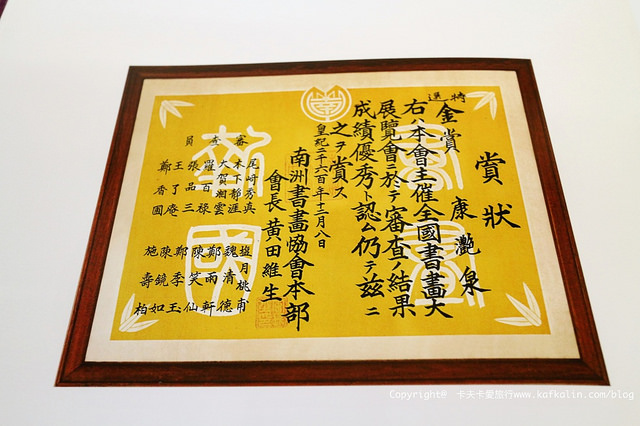 賞狀
康灩泉
特選
金賞
右ハ本會主催全國書畫大
展覽會ニ於テ審查ノ結果
成績優秀ト認ム仍テ茲ニ
之ヲ賞ス
皇紀二千六百年十二月八日
南洲書畫協會本部
會長 黃田維生
審查員
尾崎秀真
木下靜涯
大賀湘雲
羅百祿
張品三
王了庵
鄭香圃
塩月桃甫
魏清德
鄭雨軒
陳笑仙
鄭季玉
陳鏡如
施壽柏
Copyright@ 卡夫卡愛旅行www.kafkalin.com/blog